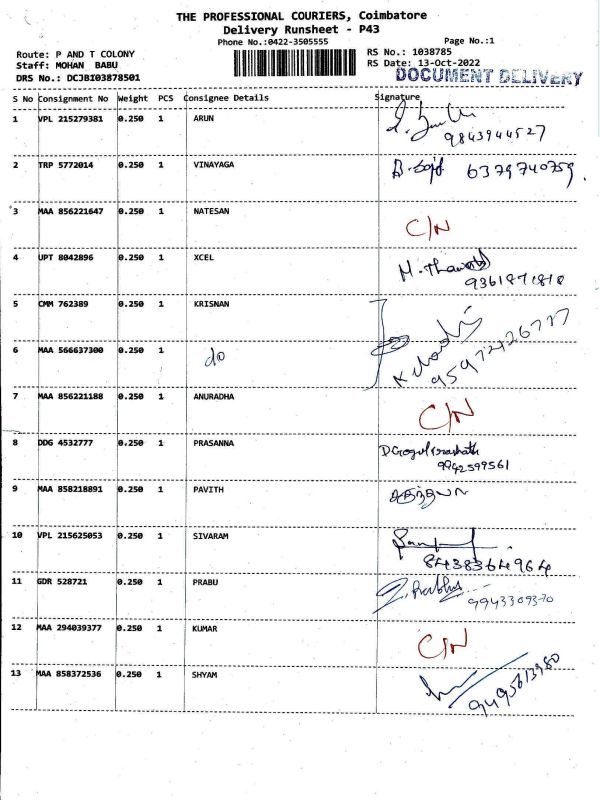 THE PROFESSIONAL COURIERS, Coimbatore
Delivery Runsheet - P43
Phone No.:0422-3505555
Page No.:1
Route: P AND T COLONY
RS No.: 1038785
Staff: MOHAN BABU
RS Date: 13-Oct-2022
DRS No.: DCJBI03878501
DOCUMENT DELIVERY
S No Consignment No Weight PCS Consignee Details Signature
1 VPL 215279381 0.250 1 ARUN
9843944527
2 TRP 5772014 0.250 1 VINAYAGA 6379740759
3 MAA 856221647 0.250 1 NATESAN
C/N
4 UPT 8042896 0.250 1 XCEL
5 CMM 762389 0.250 1 KRISNAN
6 MAA 566637300 0.250 1 do
7 MAA 856221188 0.250 1 ANURADHA
C/N
8 DDG 4532777 0.250 1 PRASANNA
9942599561
9 MAA 858218891 0.250 1 PAVITH
10 VPL 215625053 0.250 1 SIVARAM
8438364964
11 GDR 528721 0.250 1 PRABU
9943309370
12 MAA 294039377 0.250 1 KUMAR
C/N
13 MAA 858372536 0.250 1 SHYAM
9495613980